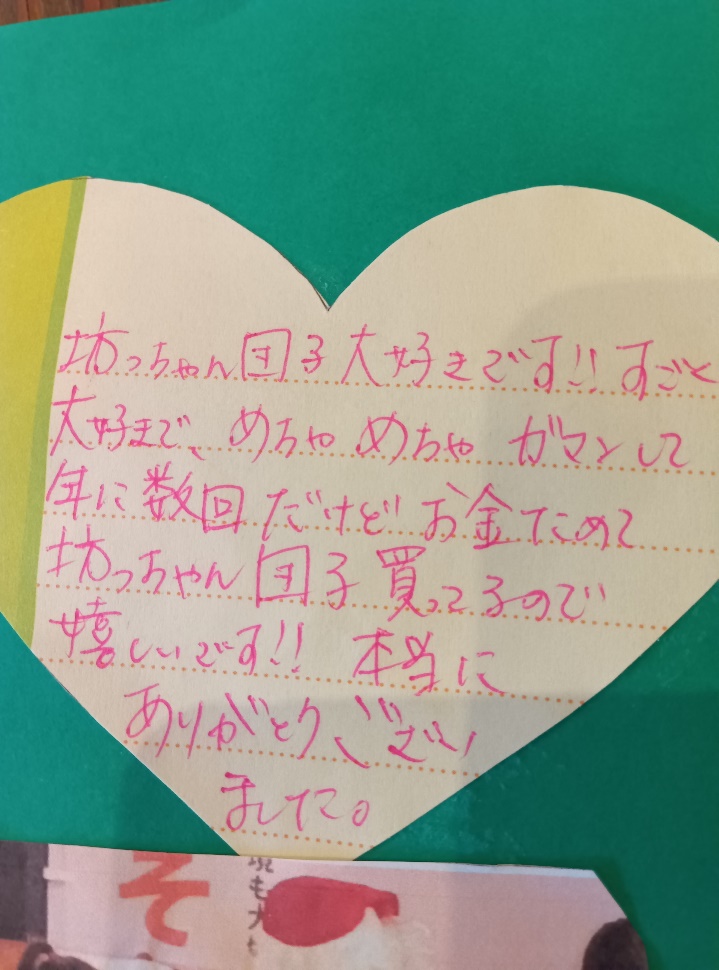 坊っちゃん団子大好きです!! すごく
大好きで、めちゃめちゃ ガマンして
年に数回だけどお金ためて
坊っちゃん団子買ってるので
嬉しいです!! 本当に
ありがとうござい
ました。
そ
境も大も